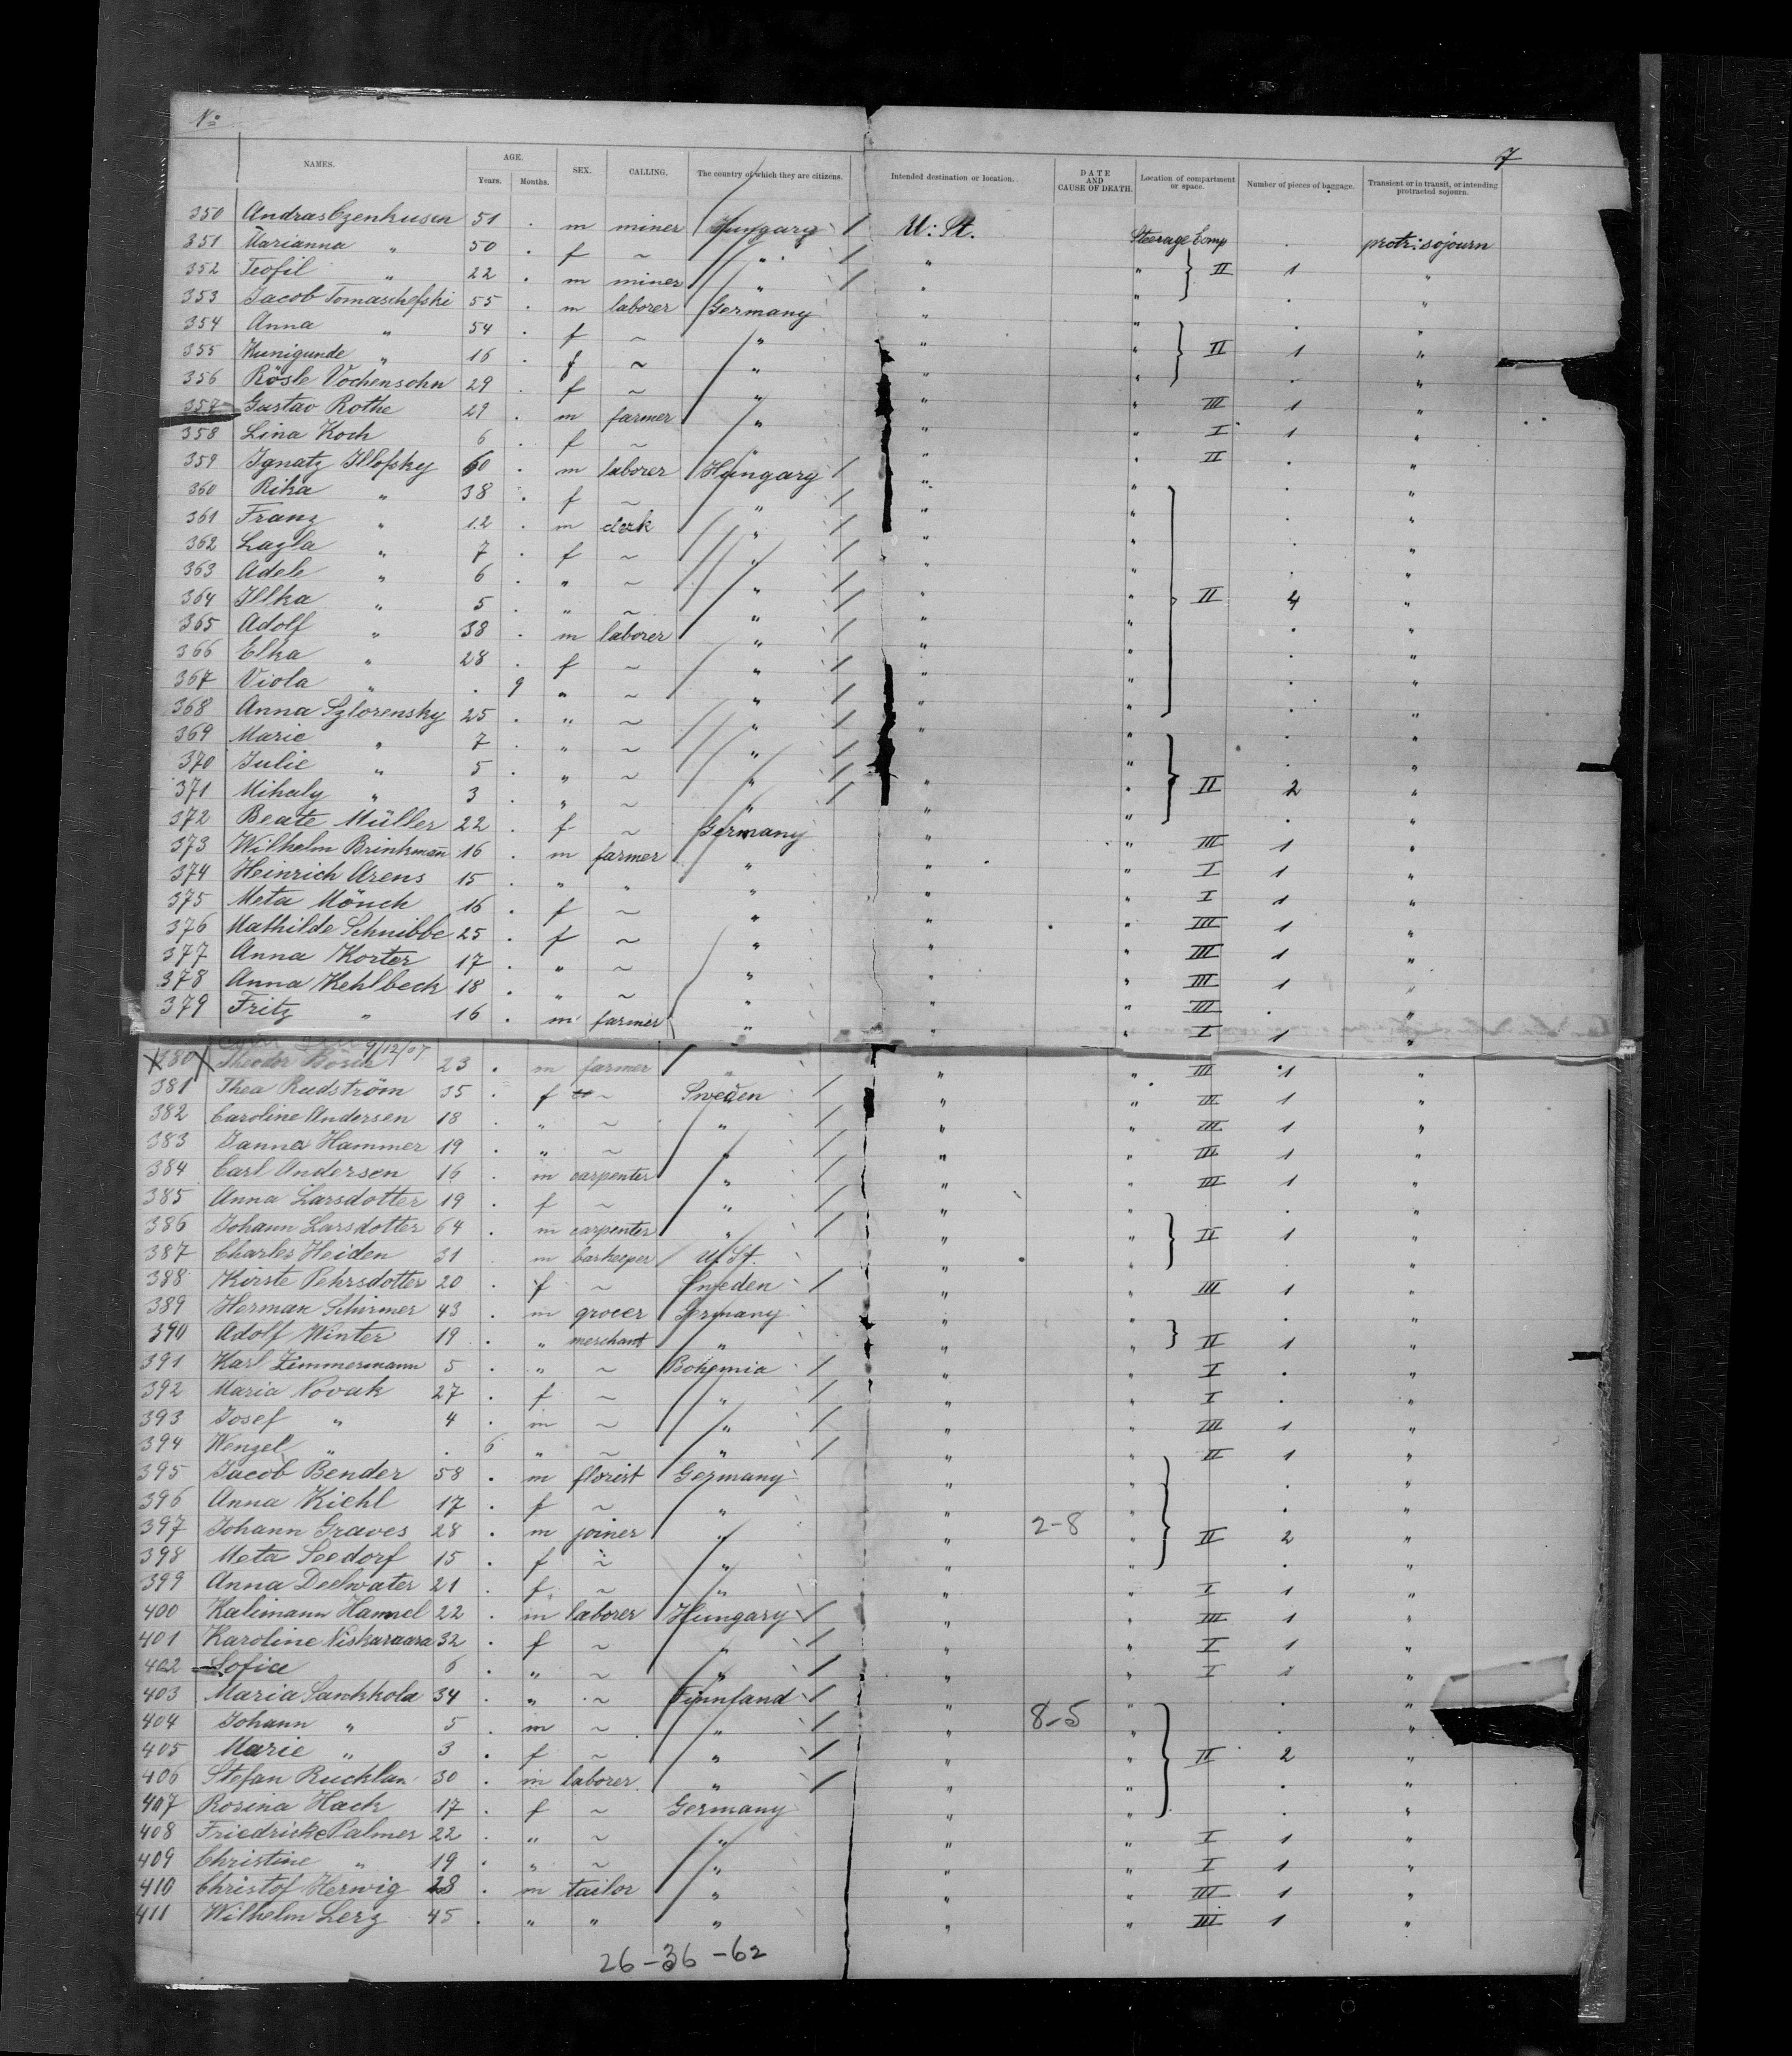 No 7
NAMES. AGE. Years. Months. SEX. CALLING. The country of which they are citizens. Intended destination or location. DATE AND CAUSE OF DEATH. Location of compartment or space. Number of pieces of baggage. Transient or in transit, or intending protracted sojourn.
350 Andras Czenhusen 51 . m miner Hungary / U: St. Steerage Comp . protr: sojourn
351 Marianna " 50 . f ~ " / " " II 1 "
352 Teofil " 22 . m miner " / " " . "
353 Jacob Tomaschefski 55 . m laborer Germany " " . "
354 Anna " 54 . f ~ " " " II 1 "
355 Kunigunde " 16 . f ~ " " " . "
356 Rösle Vochensohn 29 . f ~ " " " III 1 "
357 Gustav Rothe 29 . m farmer " " " I 1 "
358 Lina Koch 6 . f ~ " " " II . "
359 Ignatz Illofsky 60 . m laborer Hungary / " " . "
360 Rika " 38 . f ~ " / " " . "
361 Franz " 12 . m clerk " / " " . "
362 Lazla " 7 . f ~ " / " " . "
363 Adele " 6 . " ~ " / " " II 4 "
364 Illka " 5 . " ~ " / " " . "
365 Adolf " 38 . m laborer " / " " . "
366 Elka " 28 . f ~ " / " " . "
367 Viola " . 9 " ~ " / " " . "
368 Anna Szlorensky 25 . " ~ " / " " . "
369 Marie " 7 . " ~ " / " " . "
370 Julie " 5 . " ~ " / " " II 2 "
371 Mihaly " 3 . " ~ " / " " . "
372 Beate Müller 22 . f ~ Germany " " III 1 "
373 Wilhelm Brinkmañ 16 . m farmer " " " I 1 "
374 Heinrich Arens 15 . " " " " " I 1 "
375 Meta Mönch 16 . f ~ " " " III 1 "
376 Mathilde Schnibbe 25 . f ~ " " " III 1 "
377 Anna Korter 17 . " ~ " " " III 1 "
378 Anna Kehlbeck 18 . " ~ " " " III . "
379 Fritz " 16 . m farmer " " " I 1 "
9/12/07
X 380 X Theodor 23 . m farmer " " " III 1 "
381 Thea Rudström 35 . f ~ Sweden / " " III 1 "
382 Caroline Andersen 18 . " ~ " / " " III 1 "
383 Janna Hammer 19 . " ~ " / " " III 1 "
384 Carl Andersen 16 . m carpenter " / " " III 1 "
385 Anna Larsdotter 19 . f ~ " / " " . "
386 Johann Larsdotter 64 . m carpenter " / " " II 1 "
387 Charles Heiden 31 m barkeeper U. St. " " . "
388 Kirste Pehrsdotter 20 . f ~ Sweden / " III 1 "
389 Herman Schirmer 43 . m grocer Germany " " . "
390 Adolf Winter 19 . " merchant " " " II 1 "
391 Karl Zimmermann 5 . " ~ Bohemia / " " I . "
392 Maria Novak 27 . f ~ " / " " I . "
393 Josef " 4 . m ~ " / " " III 1 "
394 Wenzel " . 6 " ~ " / " " II 1 "
395 Jacob Bender 58 . m florist Germany " " "
396 Anna Kiehl 17 . f ~ " " " . "
397 Johann Graves 28 . m joiner " " 2-8 " II 2 "
398 Meta Seedorf 15 . f ~ " " " . "
399 Anna Deelwater 21 . f ~ " " " I 1 "
400 Kalimann Hamel 22 . m laborer Hungary / " " III 1 "
401 Karoline 32 . f ~ " / " " I 1 "
402 Sofie 6 . " ~ " / " " I "
403 Maria 34 . " ~ Finnland / " " . "
404 Johann " 5 . m ~ " / " 8-5 " . "
405 Marie " 3 . f ~ " / " " II 2 "
406 Stefan Rucklan 30 . m laborer " / " " . "
407 Rosina Hack 17 . f ~ Germany " " . "
408 Friedricke Palmer 22 . " ~ " " " I 1 "
409 Christine " 19 . " ~ " " " I 1 "
410 Christof Herwig 28 . m tailor " " " III 1 "
411 Wilhelm Lerz 45 . " " " " " III 1 "
26-36-62